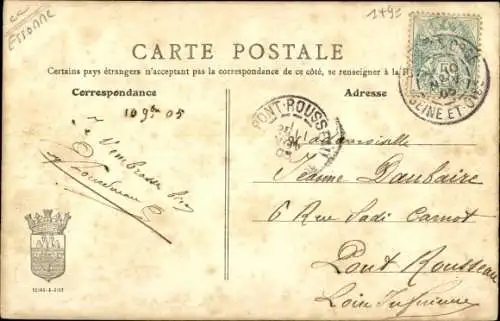 Essonne
CARTE POSTALE
Certains pays étrangers n'acceptant pas la correspondance de ce côté, se renseigner à la
Correspondance
Adresse
SEINE-ET-OISE
PONT-ROUSSEAU
10 9bre 05
Mademoiselle
Jeanne Daubaire
6 Rue Sadi Carnot
Pont Rousseau
Loire Inférieure